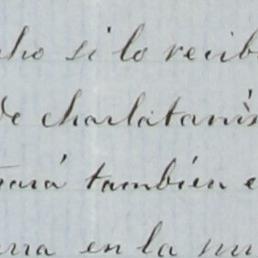 cho si lo recib
de charlatanis
rará también e
rra en la mi